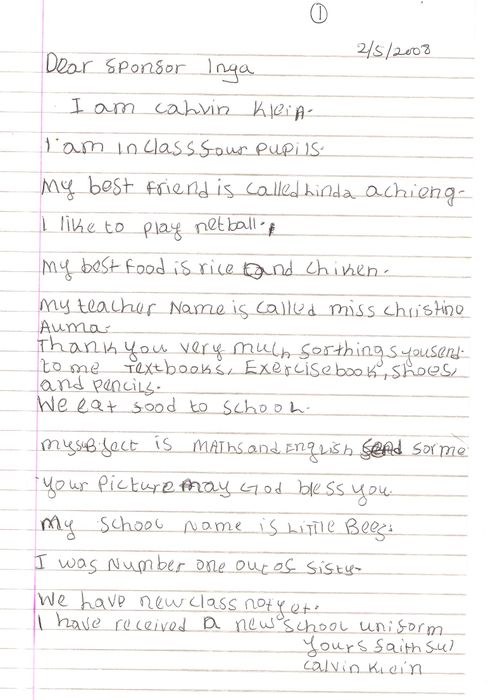 1
2/5/2008
Dear sponsor Inga
I am calvin Klein.
I am in class four pupils.
My best friend is called Linda achieng.
I like to play netball.
My best food is rice and chiken.
My teacher Name is called miss christine
Auma.
Thank you very much for things you send
to me Textbooks, Exercisebook, shoes,
and pencils.
We eat food to school.
my subject is MAths and English send for me
your picture may God bless you.
My school name is Little Bees.
I was Number one out of sisty.
We have new class not yet.
I have received a new school uniform
yours faithful
calvin Klein